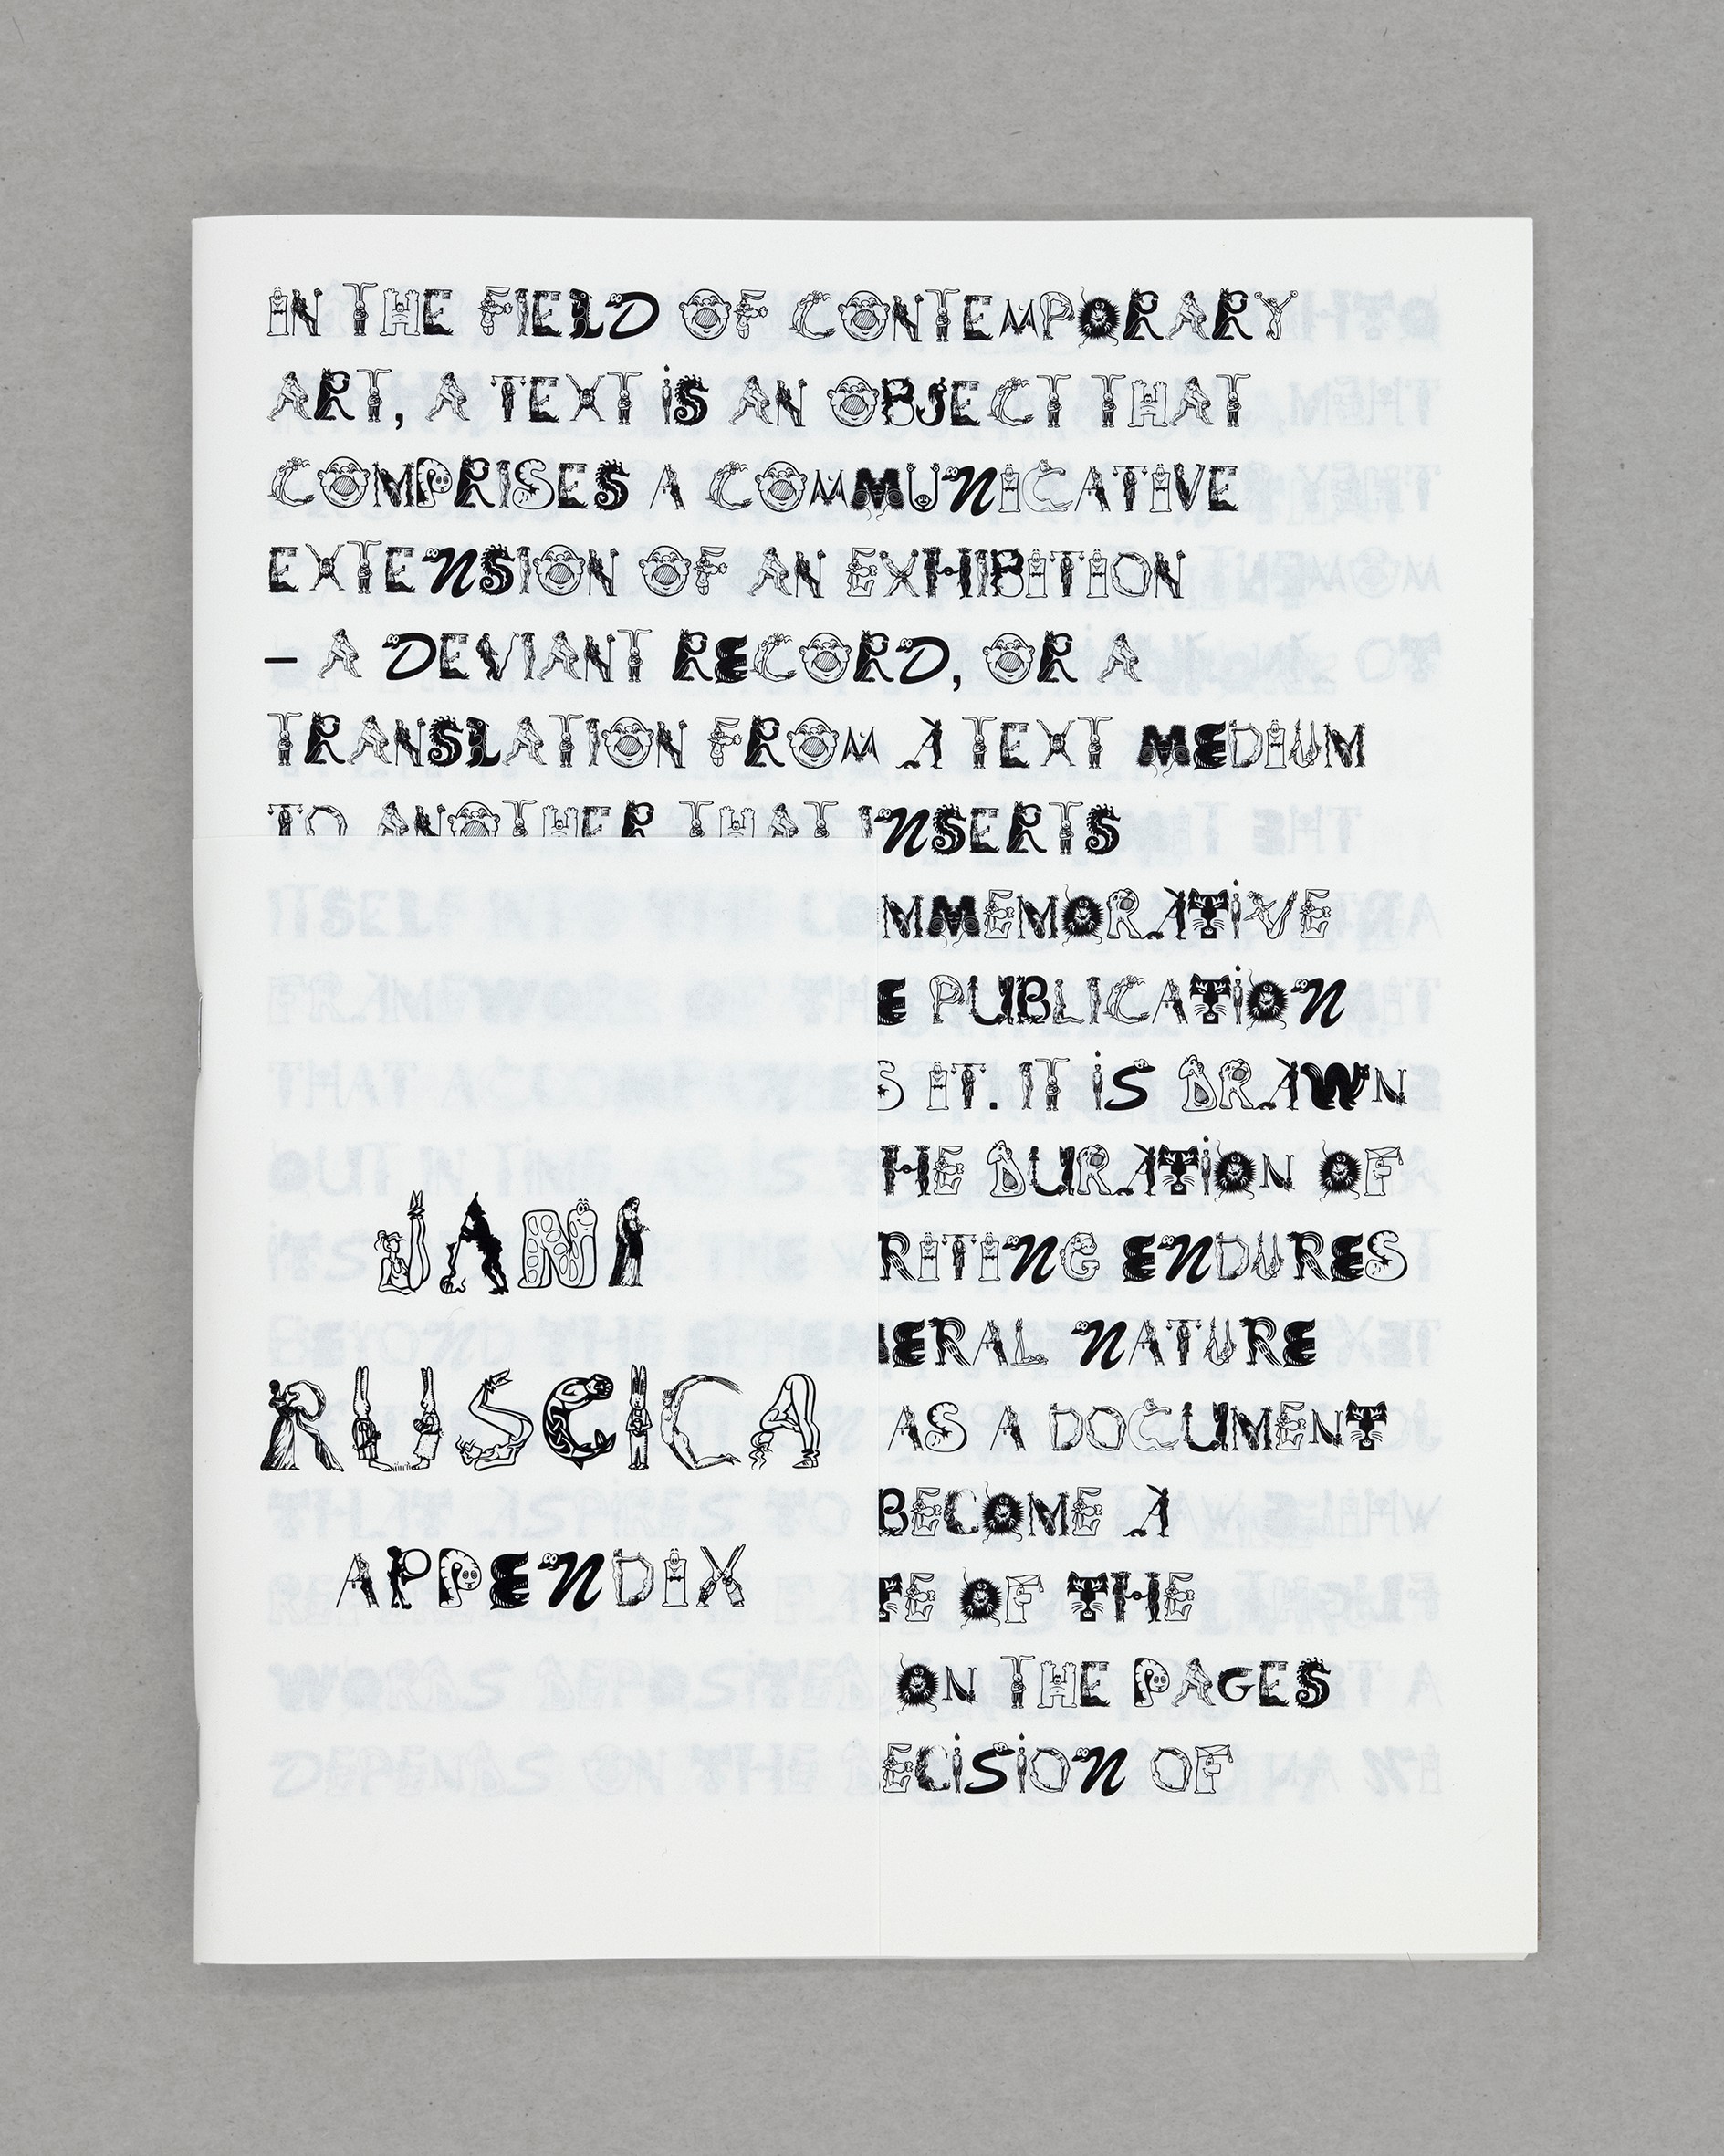 IN THE FIELD OF CONTEMPORARY
ART, A TEXT iS AN OBJECT THAT
COMPRISES A COMMUNICATIVE
EXTENSION OF AN EXHIBITION
– A DEVIANT RECORD, OR A
TRANSLATION FROM A TEXT MEDIUM
TO ANOTHER THAT INSERTS
MMEMORATiVE
E PUBLICATiON
S IT. IT iS DRAWN
HE DURATiON OF
RITING ENDURES
ERAL NATURE
AS A DOCUMENT
BECOME A
TE OF THE
ON THE PAGES
ECiSiON OF
JANI
RUSCICA
APPENDIX